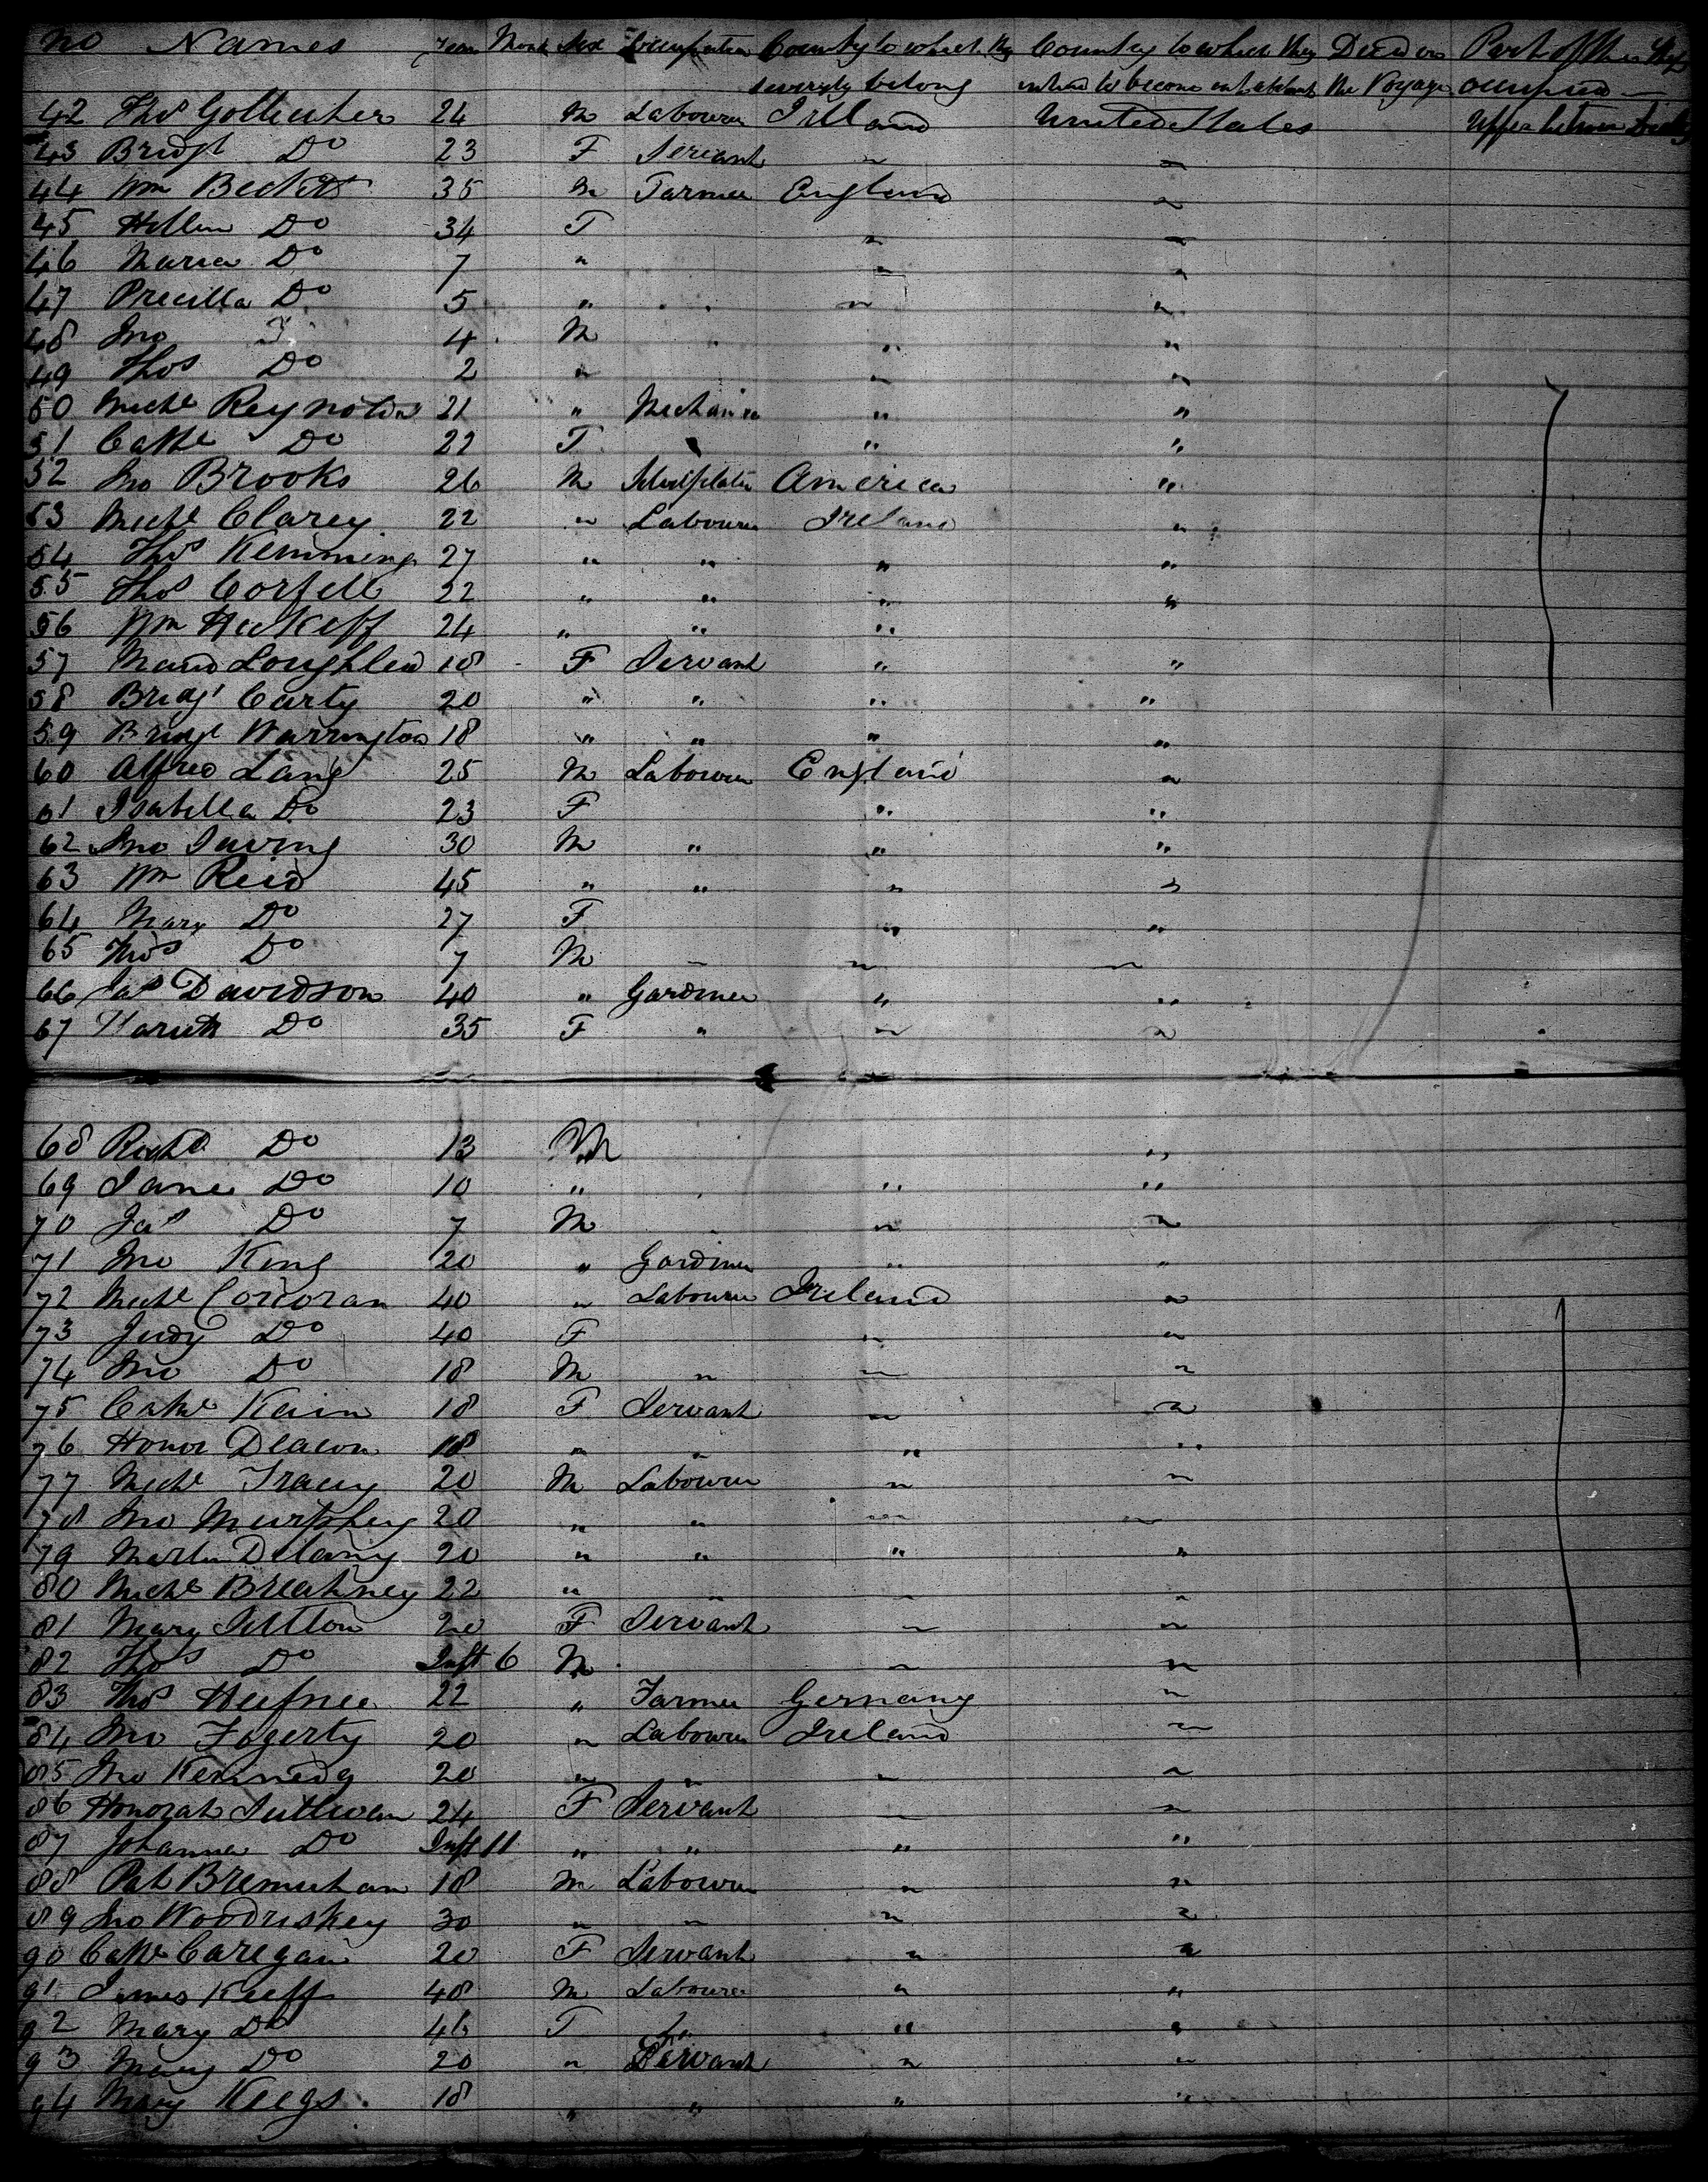 No Names Years Month Sex Occupation County to which they Country to which they Died on Part of the Ship
severely belong intend to become inhabitants the Voyage occupied
42 Thos Gollieuher 24 M Labourer Irland United States Upper between Decks
43 Bridgt Do 23 F Servant " "
44 Wm Becketts 35 M Farmer England "
45 Hellen Do 34 F " "
46 Maria Do 7 " " "
47 Precilla Do 5 " " "
48 Jno 4 M " "
49 Thos Do 2 " " "
50 Michl Reynolds 21 " Mechanic " "
51 Cathe Do 22 F " "
52 Jno Brooks 26 M America "
53 Michl Clarey 22 " Labourer Ireland "
54 Thos Kemming 27 " " " "
55 Thos Corfell 22 " " " "
56 Wm Huckeff 24 " " "
57 Loughlen 18 F Servant " "
58 Bridgt Carty 20 " " " "
59 Bridgt Warrington 18 " " " "
60 Alfred Lang 25 M Labourer England "
61 Isabella Do 23 F " "
62 Jno Irving 30 M " " "
63 Wm Reid 45 " " " "
64 Mary Do 27 F " "
65 Thos Do 7 M " " "
66 Jas Davidson 40 " Gardner " "
67 Do 35 F " " "
68 Richd Do 13 M "
69 Jane Do 10 " " "
70 Jas Do 7 M " "
71 Jno King 20 " Gardner " "
72 Michl Corcoran 40 " Labourer Ireland "
73 Judy Do 40 F " "
74 Jno Do 18 M " " "
75 Cathe Kain 18 F Servant " "
76 Honor Deacon 18 " " " "
77 Michl Tracey 20 M Labourer " "
78 Jno Murphey 20 " " " "
79 Martin Delany 20 " " " "
80 Michl Breahney 22 " " " "
81 Mary Sutton 20 F Servant " "
82 Thos Do Inft 6 M " "
83 Thos Heefner 22 " Farmer Germany "
84 Jno Fogerty 20 " Labourer Ireland "
85 Jno Kennedy 20 " " " "
86 Honorah Sullivan 24 F Servant " "
87 Johanna Do Inft 11 " " " "
88 Pat Bremichan 18 M Labourer " "
89 Jno Woodriskey 30 " " " "
90 Cathe Caregan 20 F Servant " "
91 James Keeff 48 M Labourer " "
92 Mary Do 46 F " "
93 Mary Do 20 " Servant " "
94 Mary Keegs 18 " " " "